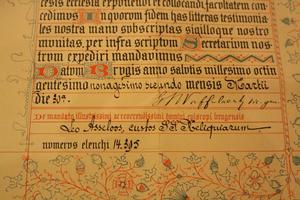 tecis ecclesia exponendi et collocandi, facultatem con-
cedimus. In quorum fidem has litteras testimonia-
les nostra manu subscriptas sigilloque nostro
munitas, per infra scriptum Secretarium nos-
trum expediri mandavimus
Datum Brugis anno salutis millesimo octin
gentesimo nonagesimo secundo mensis Martii
die 30ª.
De mandato illustrissimi ac reverendissimi domini episcopi brugensis
Leo Asseloos, custos SS. Reliquiarum
numerus elenchi 14.395